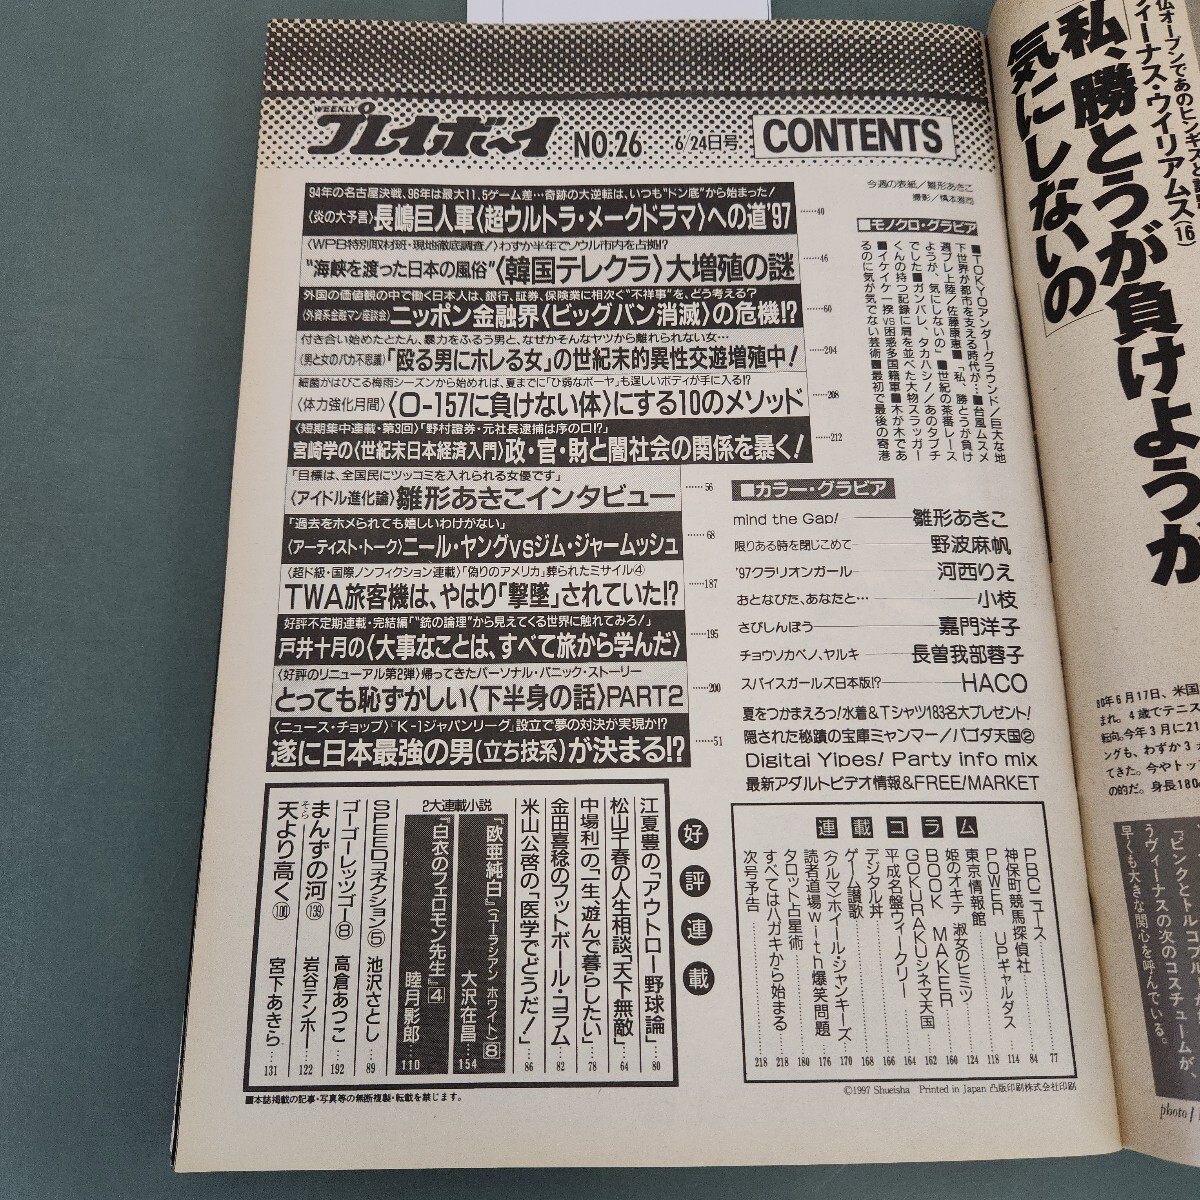 WEEKLY
プレイボーイ NO.26 6/24日号 CONTENTS
今週の表紙/雛形あきこ
撮影/橋本雅司
94年の名古屋決戦、96年は最大11.5ゲーム差…奇跡の大逆転は、いつも“ドン底”から始まった!
〈炎の大予言〉長嶋巨人軍〈超ウルトラ・メークドラマ〉への道'97 ……40
〈WPB特別取材班・現地徹底調査/〉わずか半年でソウル市内を占拠!?
“海峡を渡った日本の風俗”〈韓国テレクラ〉大増殖の謎 ……46
外国の価値観の中で働く日本人は、銀行、証券、保険業に相次ぐ“不祥事”を、どう考える?
〈外資系金融マン座談会〉ニッポン金融界〈ビッグバン消滅〉の危機!? ……60
付き合い始めたとたん、暴力をふるう男と、なぜかそんなヤツから離れられない女…
〈男と女のバカ不思議〉「殴る男にホレる女」の世紀末的異性交遊増殖中! ……204
細菌がはびこる梅雨シーズンから始めれば、夏までに「ひ弱なボーヤ」も逞しいボディが手に入る!?
〈体力強化月間〉〈O-157に負けない体〉にする10のメソッド ……208
〈短期集中連載・第3回〉「野村證券・元社長逮捕は序の口!?」
宮崎学の〈世紀末日本経済入門〉政・官・財と闇社会の関係を暴く! ……212
「目標は、全国民にツッコミを入れられる女優です」
〈アイドル進化論〉雛形あきこインタビュー ……56
「過去をホメられても嬉しいわけがない」
〈アーティスト・トーク〉ニール・ヤングvsジム・ジャームッシュ ……68
〈超ド級・国際ノンフィクション連載〉「偽りのアメリカ」葬られたミサイル④
TWA旅客機は、やはり「撃墜」されていた!? ……187
好評不定期連載・完結編「“銃の論理”から見えてくる世界に触れてみろ!」
戸井十月の〈大事なことは、すべて旅から学んだ〉 ……195
〈好評のリニューアル第2弾〉帰ってきたパーソナル・パニック・ストーリー
とっても恥ずかしい〈下半身の話〉PART2 ……200
〈ニュース・チョップ〉『K-1ジャパンリーグ』設立で夢の対決が実現か!?
遂に日本最強の男(立ち技系)が決まる!? ……51
■モノクロ・グラビア
■TOKYOアンダーグラウンド/巨大な地
下世界が都市を支える時代が…■台風ムスメ
週プレ上陸/佐藤康恵■「私、勝とうが負け
ようが、気にしないの」■世紀の茶番レース
でした■ガンバレ、タカハシ!/あのタブチ
くんの持つ記録に肩を並べた大物スラッガー
■イケイケ一揆vs困惑多国籍軍■木が木であ
るのに気が気でない芸術■最初で最後の寄港
■カラー・グラビア
mind the Gap! 雛形あきこ
限りある時を閉じこめて 野波麻帆
'97クラリオンガール 河西りえ
おとなびた、あなたと… 小枝
さびしんぼう 嘉門洋子
チョウソカベノ、ヤルキ 長曽我部蓉子
スパイスガールズ日本版!? HACO
夏をつかまえろっ!水着&Tシャツ183名大プレゼント!
隠された秘蹟の宝庫ミャンマー/パゴダ天国②
Digital Yipes! Party info mix
最新アダルトビデオ情報&FREE/MARKET
好評連載
江夏豊の「アウトロー野球論」…80
松山千春の人生相談「天下無敵」…64
中場利一の「一生、遊んで暮らしたい」…78
金田喜稔のフットボール・コラム…82
米山公啓の「医学でどうだ!」…86
2大連載小説
『欧亜純白』(ユーラシアン ホワイト)⑧ 大沢在昌…154
『白衣のフェロモン先生』④ 睦月影郎…110
SPEEDコネクション⑤ 池沢さとし…89
ゴーゴーレッツゴー⑧ 高倉あつこ…192
まんずの河(139) 岩谷テンホー…122
天(そら)より高く(100) 宮下あきら…131
連載コラム
PBCニュース 77
神保町競馬探偵社 84
POWER UPギャルダス 114
東京情報館 118
姫のオキテ 淑女のヒミツ 124
BOOK MAKER 160
GOKURAKUシネマ天国 162
平成名盤ウィークリー 164
デジタル丼 166
ゲーム讃歌 168
〈クルマ〉ホイール・ジャンキーズ 170
読者道場with爆笑問題 176
タロット占星術 180
すべてはハガキから始まる 218
次号予告 218
■本誌掲載の記事・写真等の無断複製・転載を禁じます。
©1997 Shueisha Printed in Japan 凸版印刷株式会社印刷
仏オープンであのヒンギスと
ィーナス・ウイリアムス(16)
私、勝とうが負けようが
気にしないの」
80年6月17日、米国
まれ。4歳でテニス
転向。今年3月に21
ングも、わずか3
てきた。今やトップ
の的だ。身長180
『ピンクとトルコブルー
うヴィーナスの次のコスチュームが、
早くも大きな関心を呼んでいる。
photo /